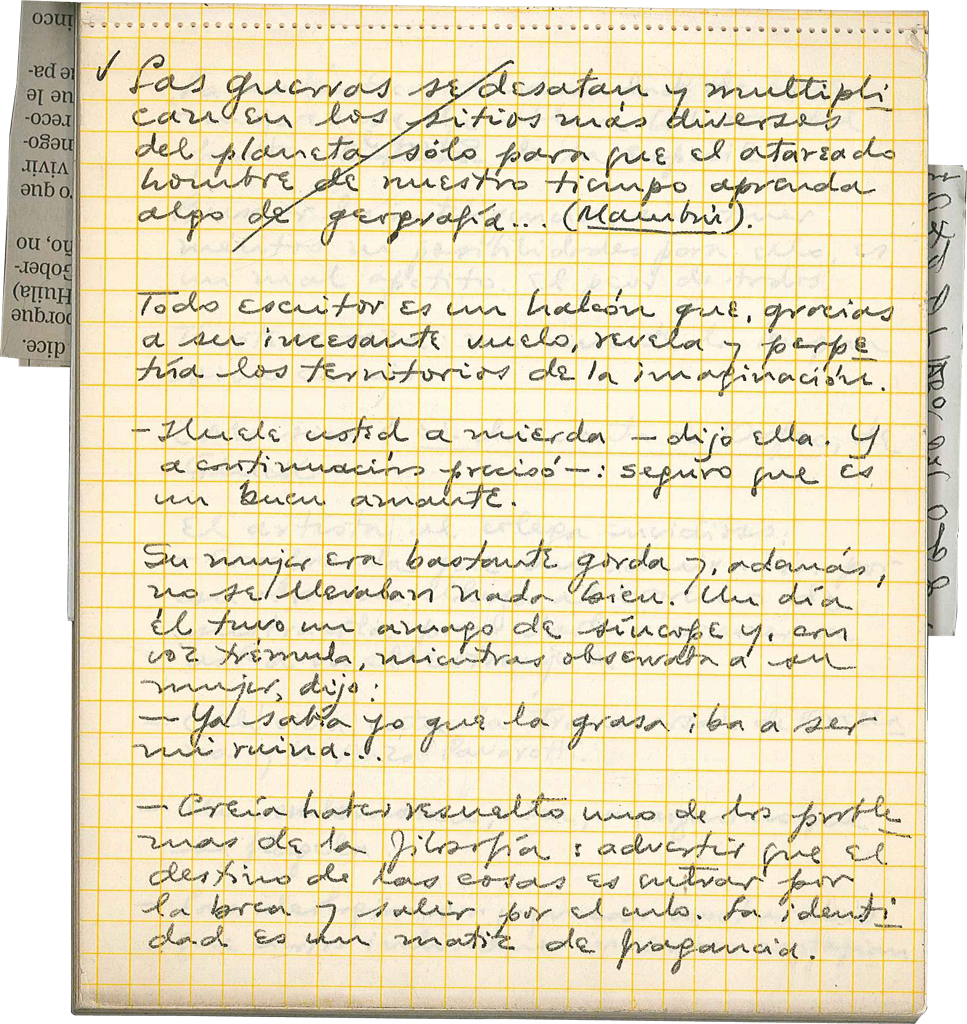 ✓ Las guerras se desatan y multipli
can en los sitios más diversos
del planeta sólo para que el atareado
hombre de nuestro tiempo aprenda
algo de geografía... (Mambrú).
Todo escritor es un halcón que, gracias
a su incesante vuelo, revela y perpe
túa los territorios de la imaginación.
- Huele usted a mierda - dijo ella. Y
a continuación precisó -: seguro que es
un buen amante.
Su mujer era bastante gorda y, además,
no se llevaban nada bien. Un día
él tuvo un amago de síncope y, con
voz trémula, mientras observaba a su
mujer, dijo:
- Ya sabía yo que la grasa iba a ser
mi ruina...
- Creía haber resuelto uno de los proble
mas de la filosofía: advertir que el
destino de las cosas es entrar por
la boca y salir por el culo. La identi
dad es un matiz de fragancia.
inco
ue pa-
que le
reco-
nego-
vivir
ro que
ño, no
Gober-
Huila)
porque
dice.